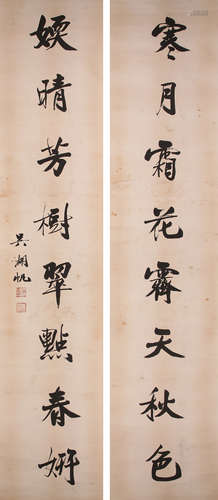 寒月霜花霽天秋色
嫩晴芳樹翠點春妍
吳湖帆